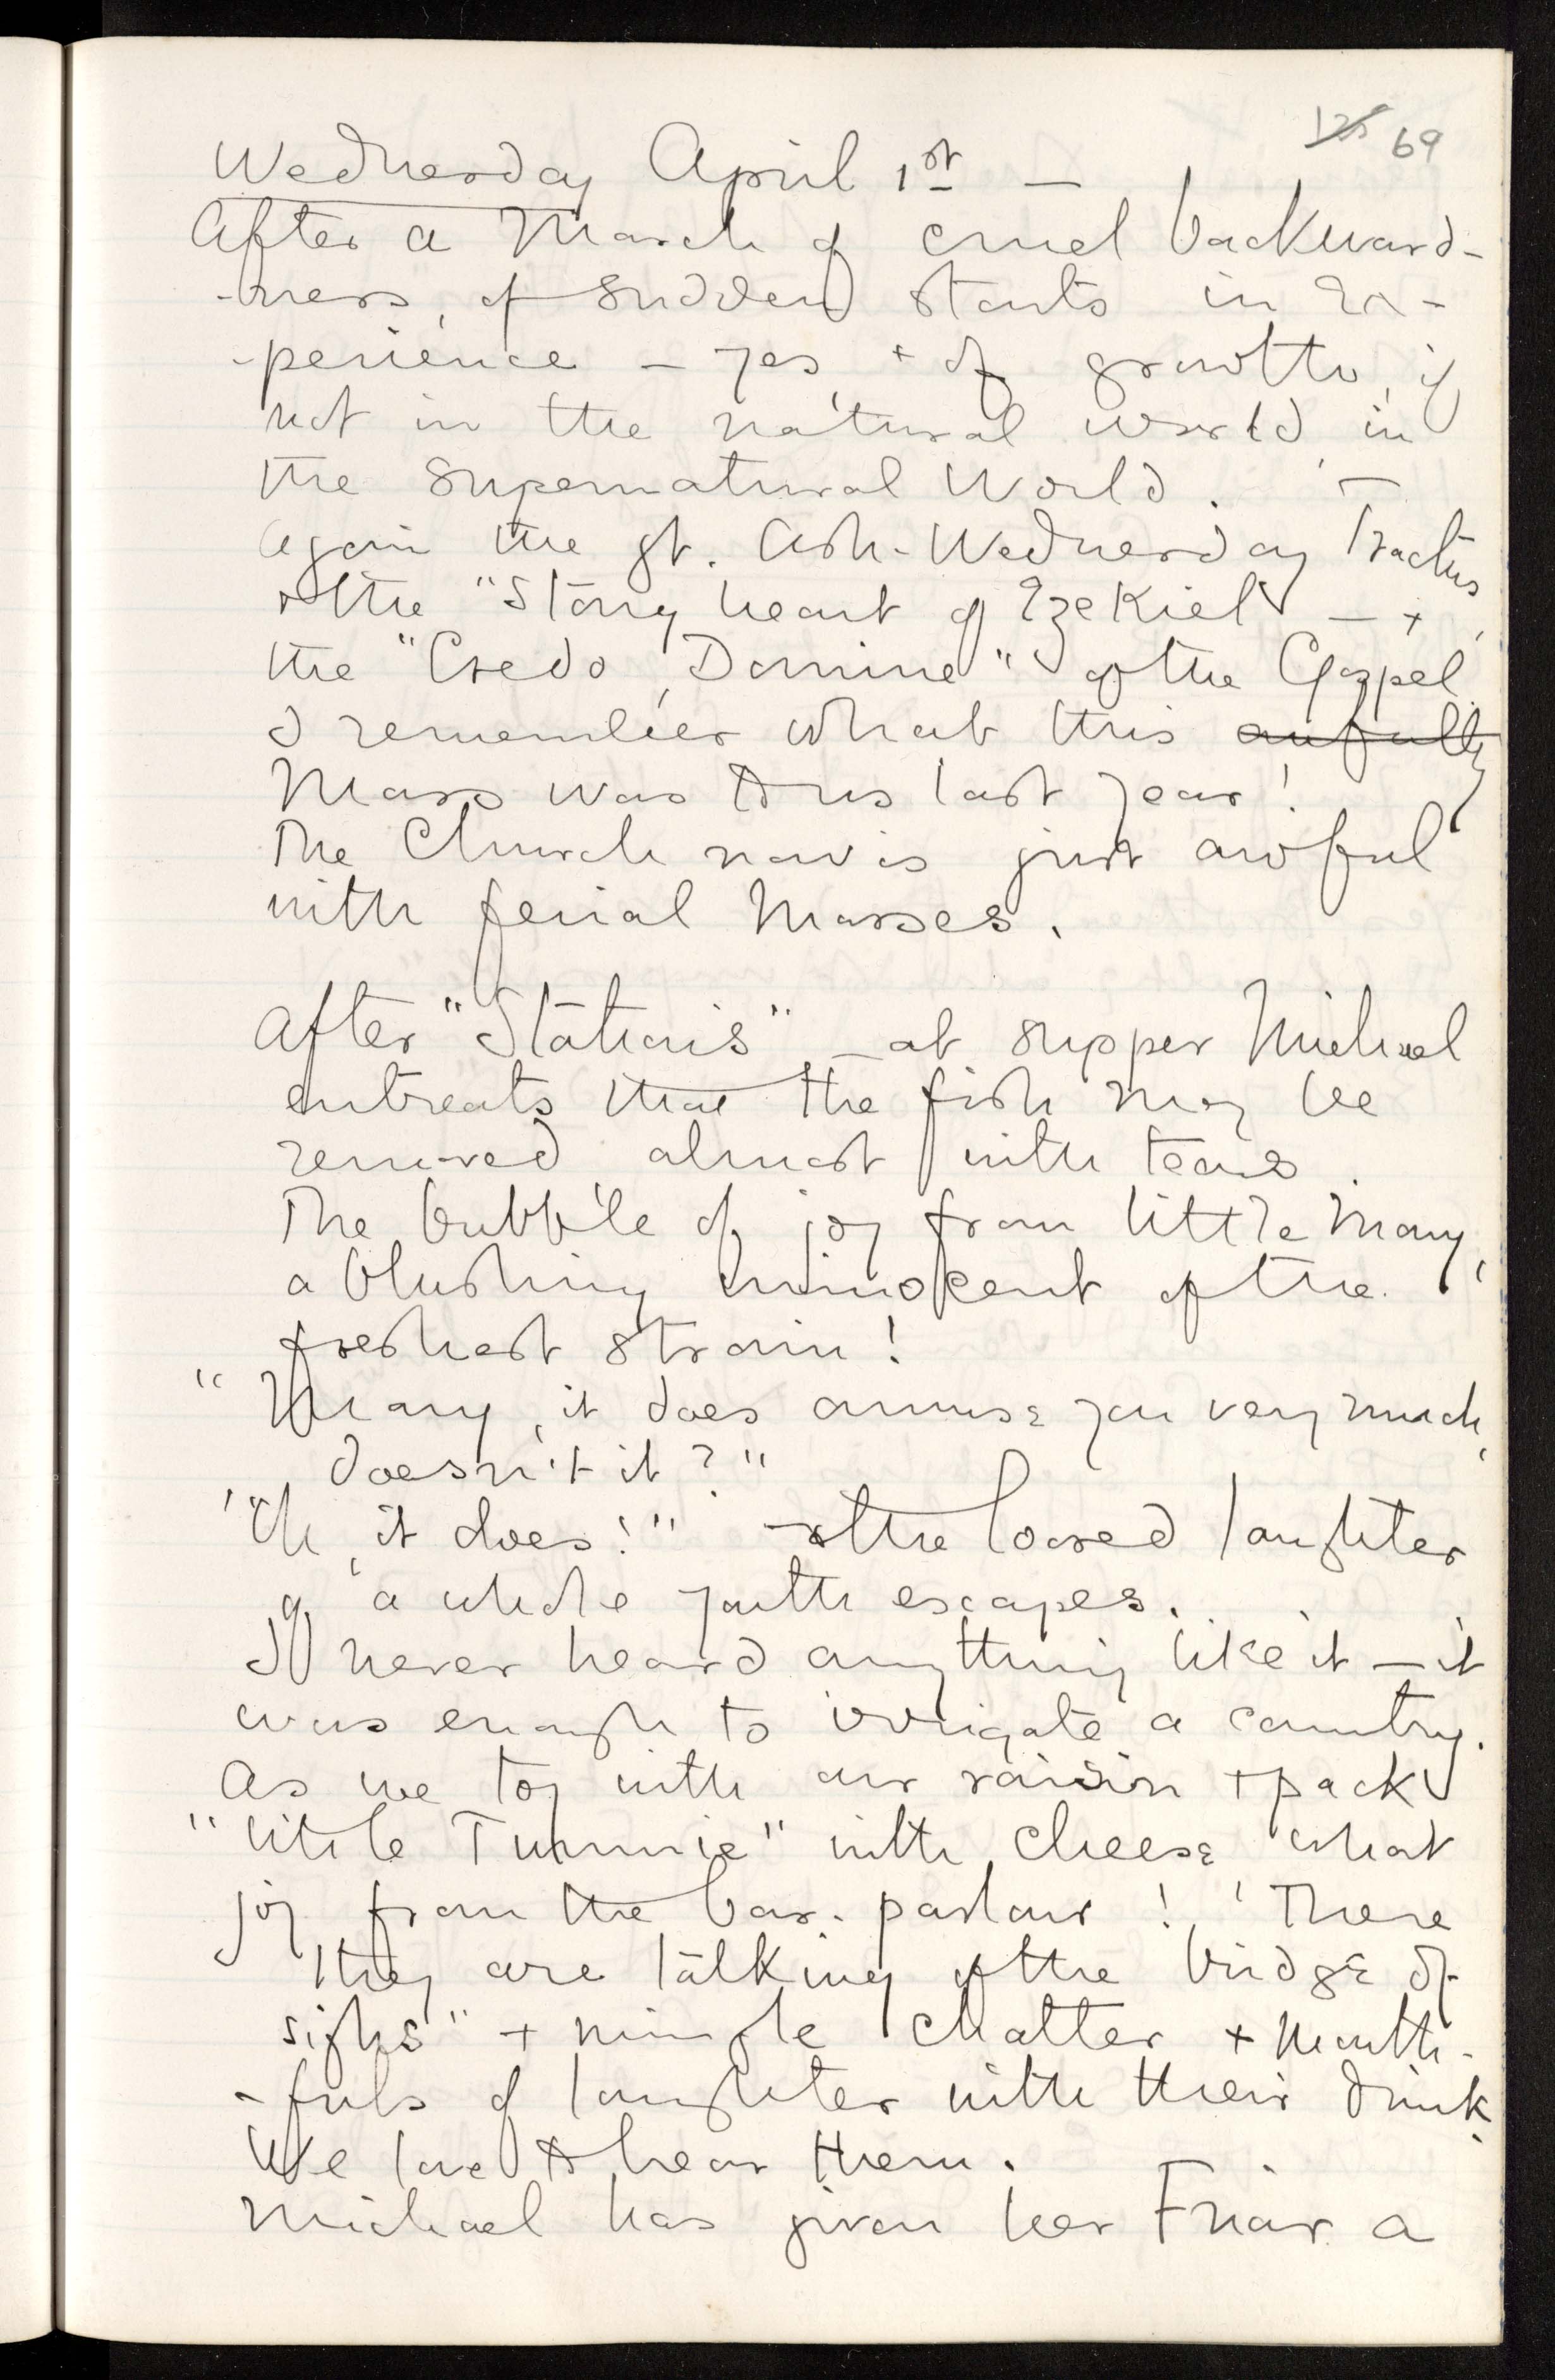 125 69
Wednesday April 1st —
After a March of cruel backward-
-ness, of sudden starts in Ex-
-perience — yes, + of growth, if
not in the natural world, in
the supernatural World.
Again the gt. Ash-Wednesday Tractus,
+ the "Stony heart of Ezekiel" — +
the "Credo, Domine" of the Gospel.
I remember what this awfully
Mass was to us last year!
The Church now is just awful
with ferial Masses.
After "Stations" — at supper Michael
entreats that the fish may be
removed almost with tears.
The bubble of joy from little Mary,
a blushing innocent of the
freshest strain!
"Mary, it does amuse you very much,
doesn't it?"
"Oh, it does!" — + the loosed laughter
of a whole youth escapes.
I never heard anything like it — it
was enough to irrigate a country.
As we toy with our raisin + pack
"little Tummie" with cheese what
joy from the bar-parlour! "There
they are talking of the bridge of
sighs" + mingle chatter + mouth-
-fuls of laughter with their drink.
We love to hear them.
Michael has given her Friar a